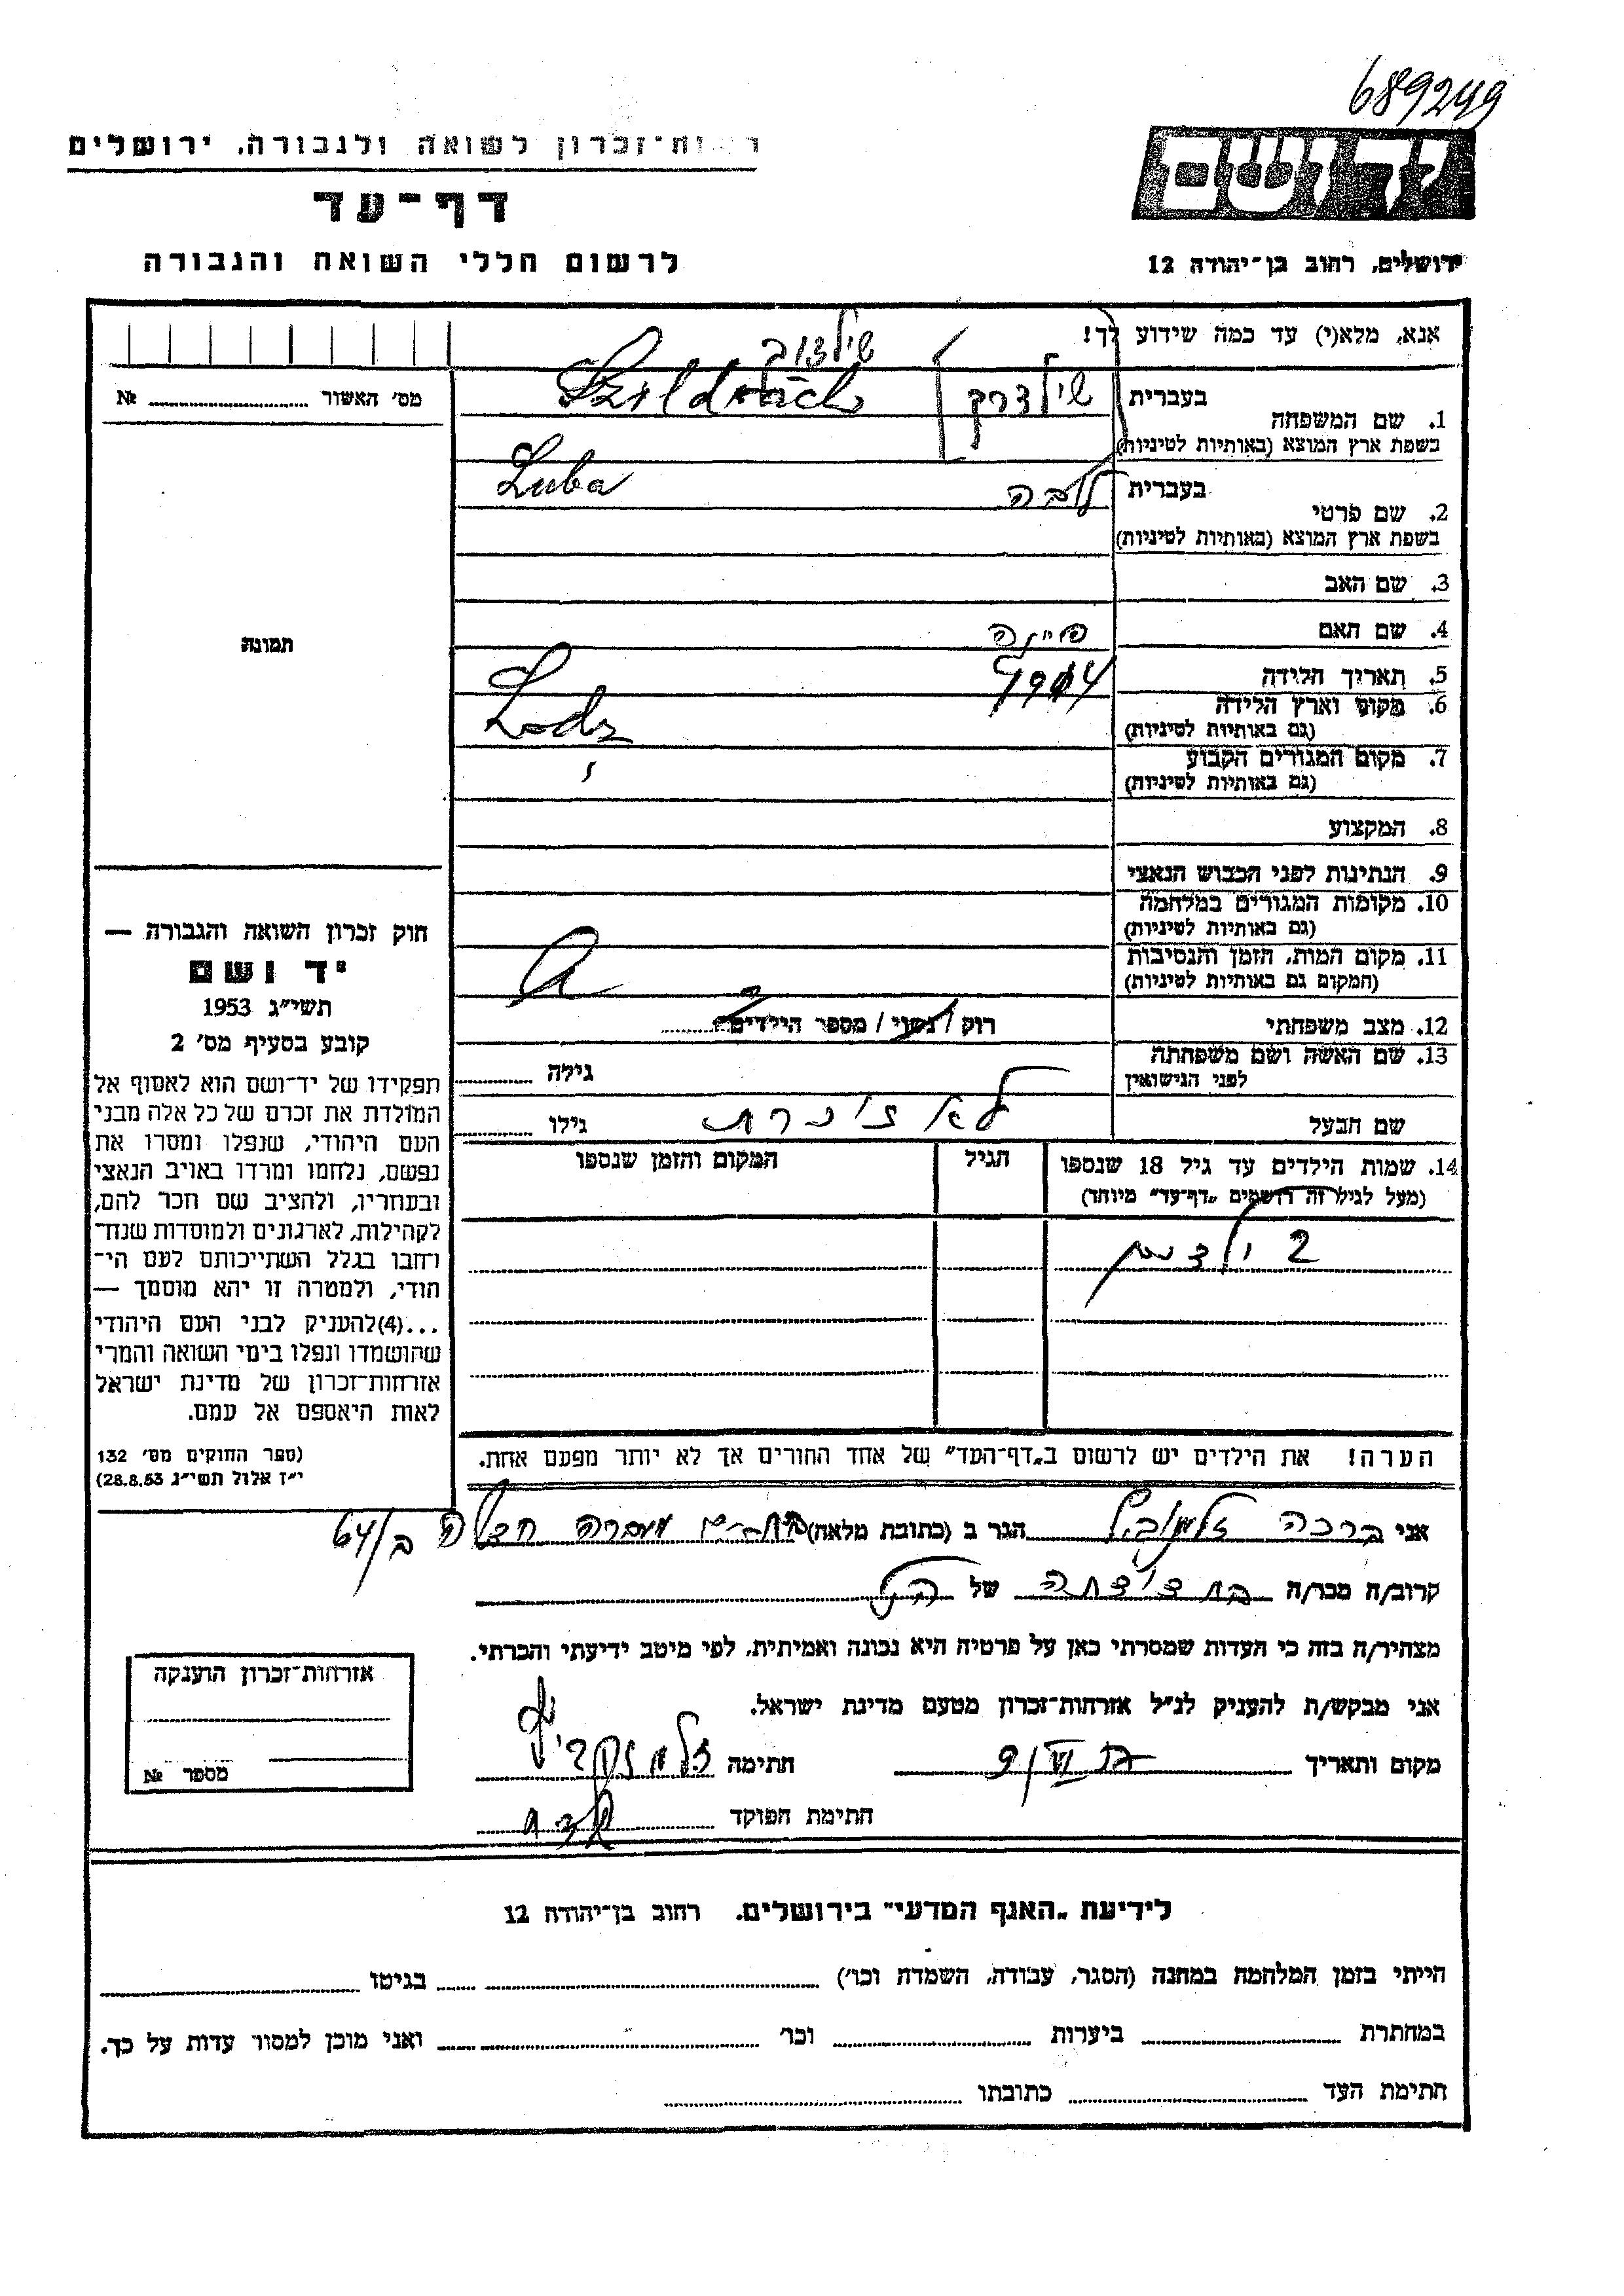 689249
יד ושם
ירושלים, רחוב בן-יהודה 12
רשות-זכרון לשואה ולגבורה, ירושלים
דף-עד
לרשום חללי השואה והגבורה
אנא, מלא(י) עד כמה שידוע לך!
מס' האשור № 
1. שם המשפחה
בעברית
בשפת ארץ המוצא (באותיות לטיניות)
2. שם פרטי
בעברית לובה Luba
בשפת ארץ המוצא (באותיות לטיניות)
3. שם האב
4. שם האם
5. תאריך הלידה
6. מקום וארץ הלידה Lodz
(גם באותיות לטיניות)
7. מקום המגורים הקבוע
(גם באותיות לטיניות)
8. המקצוע
9. הנתינות לפני הכבוש הנאצי
10. מקומות המגורים במלחמה
(גם באותיות לטיניות)
11. מקום המות, הזמן והנסיבות
(המקום גם באותיות לטיניות)
12. מצב משפחתי רוק / נשוי / מספר הילדים 2
13. שם האשה ושם משפחתה
לפני הנישואין
גילה
שם הבעל
גילו
תמונה
חוק זכרון השואה והגבורה —
יד ושם
תשי״ג 1953
קובע בסעיף מס' 2
תפקידו של יד-ושם הוא לאסוף אל
המולדת את זכרם של כל אלה מבני
העם היהודי, שנפלו ומסרו את
נפשם, נלחמו ומרדו באויב הנאצי
ובעוזריו, ולהציב שם וזכר להם,
לקהילות, לארגונים ולמוסדות שנח-
רחבו בגלל השתייכותם לעם הי-
הודי, ולמטרה זו יהא מוסמך —
...(4)להעניק לבני העם היהודי
שהושמדו ונפלו בימי השואה והמרי
אזרחות-זכרון של מדינת ישראל
לאות היאספם אל עמם.
(ספר החוקים מס' 132
י״ז אלול תשי״ג 28.8.53)
14. שמות הילדים עד גיל 18 שנספו
(מעל לגיל זה רושמים „דף-עד״ מיוחד)
הגיל
המקום והזמן שנספו
2 ילדים
הערה! את הילדים יש לרשום ב„דף-העד״ של אחד ההורים אך לא יותר מפעם אחת.
אני ברכה הגר ב (כתובת מלאה) 64/ב
קרוב/ה מכר/ה בת דודתה של הנ״ל
מצהיר/ה בזה כי העדות שמסרתי כאן על פרטיה היא נכונה ואמיתית, לפי מיטב ידיעתי והכרתי.
אני מבקש/ת להעניק לנ״ל אזרחות-זכרון מטעם מדינת ישראל.
מקום ותאריך
חתימה
חתימת הפוקד
אזרחות-זכרון הוענקה
מספר №
לידיעת „האגף המדעי״ בירושלים, רחוב בן-יהודה 12
הייתי בזמן המלחמה במחנה (הסגר, עבודה, השמדה וכו') בגיטו
במחתרת ביערות וכו' ואני מוכן למסור עדות על כך.
חתימת העד כתובתו